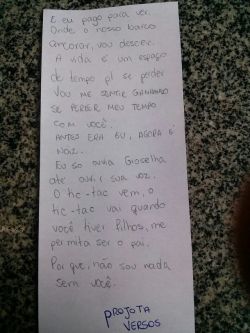 E eu pago para ver.
Onde o nosso barco
ancorar, vou descer.
A vida é um espaço
de tempo p/ se perder
Vou me sentir ganhando
se perder meu tempo
com você.
Antes era eu, agora é
noiz.
Eu so ouvia Groselha
ate ouvir sua voz.
O tic-tac vem, o
tic-tac vai quando
você tiver filhos, me
permita ser o pai.
Por que, não sou nada
sem você.
PROJOTA
VERSOS